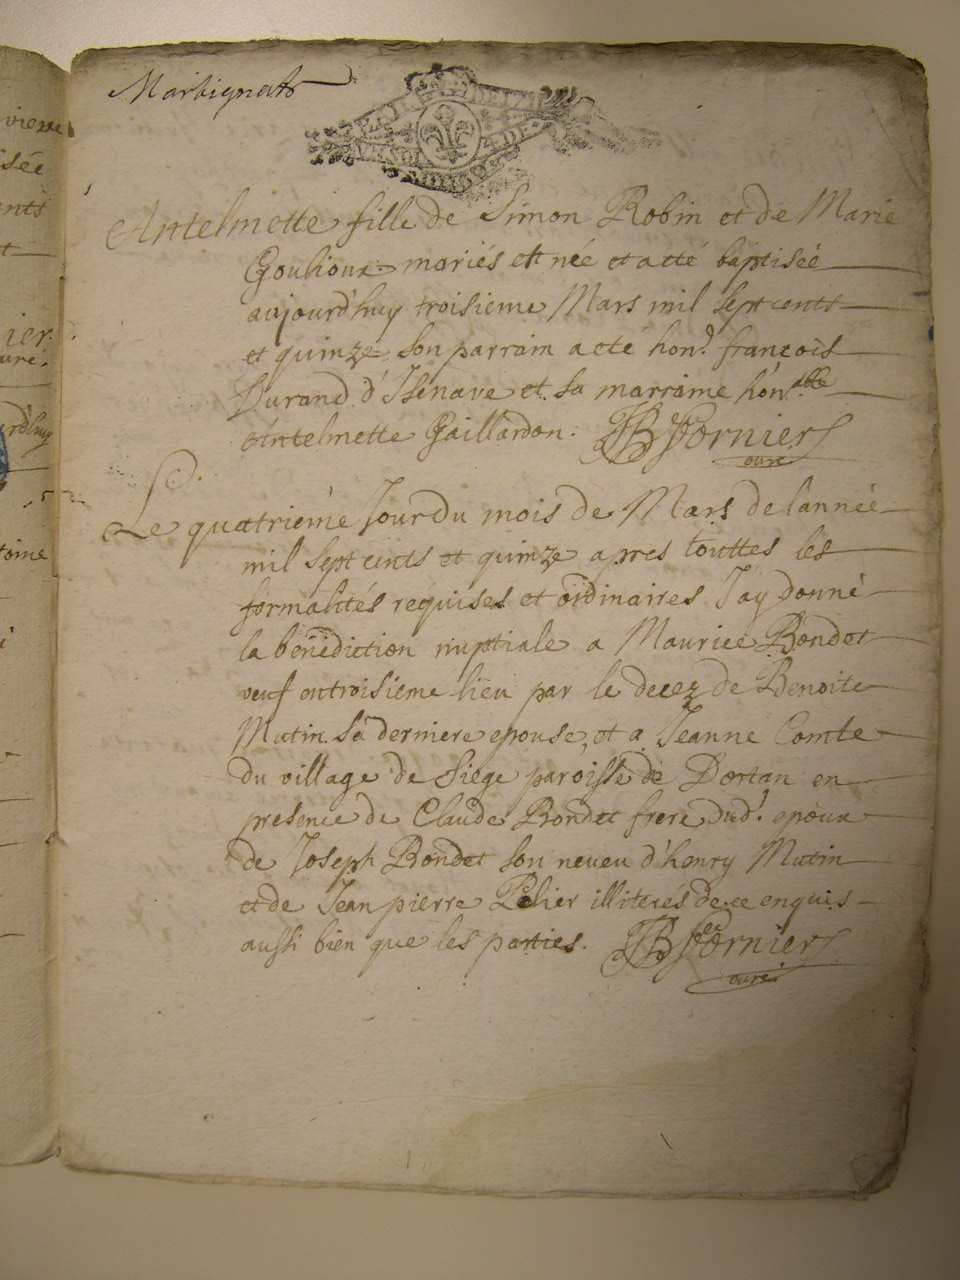 Martignat
Antelmette fille de Simon Robin et de Marie
Goulioux mariés est née et a eté baptisée
aujourd'huy troisieme Mars mil sept cents
et quinze son parrain a eté hon.d françois
Durand d'Isenave et sa marraine hon.able
Antelmette Gaillardon. JB Fornier
curé
Le quatriéme Jour du mois de Mars de l'année
mil sept cents et quinze apres touttes les
formalités requises et ordinaires J'ay donné
la bénédiction nuptiale a Maurice Bondet
veuf en troisieme lieu par le decez de Benoite
Mutin sa derniere epouse, et a Jeanne Comte
du village de Siege paroisse de Dortan en
presence de Claude Bondet frere dud.t epoux
de Joseph Bondet son neveu d'henry Mutin
et de Jean pierre Pelier illiterés de ce enquis
aussi bien que les parties. JB Fornier
curé